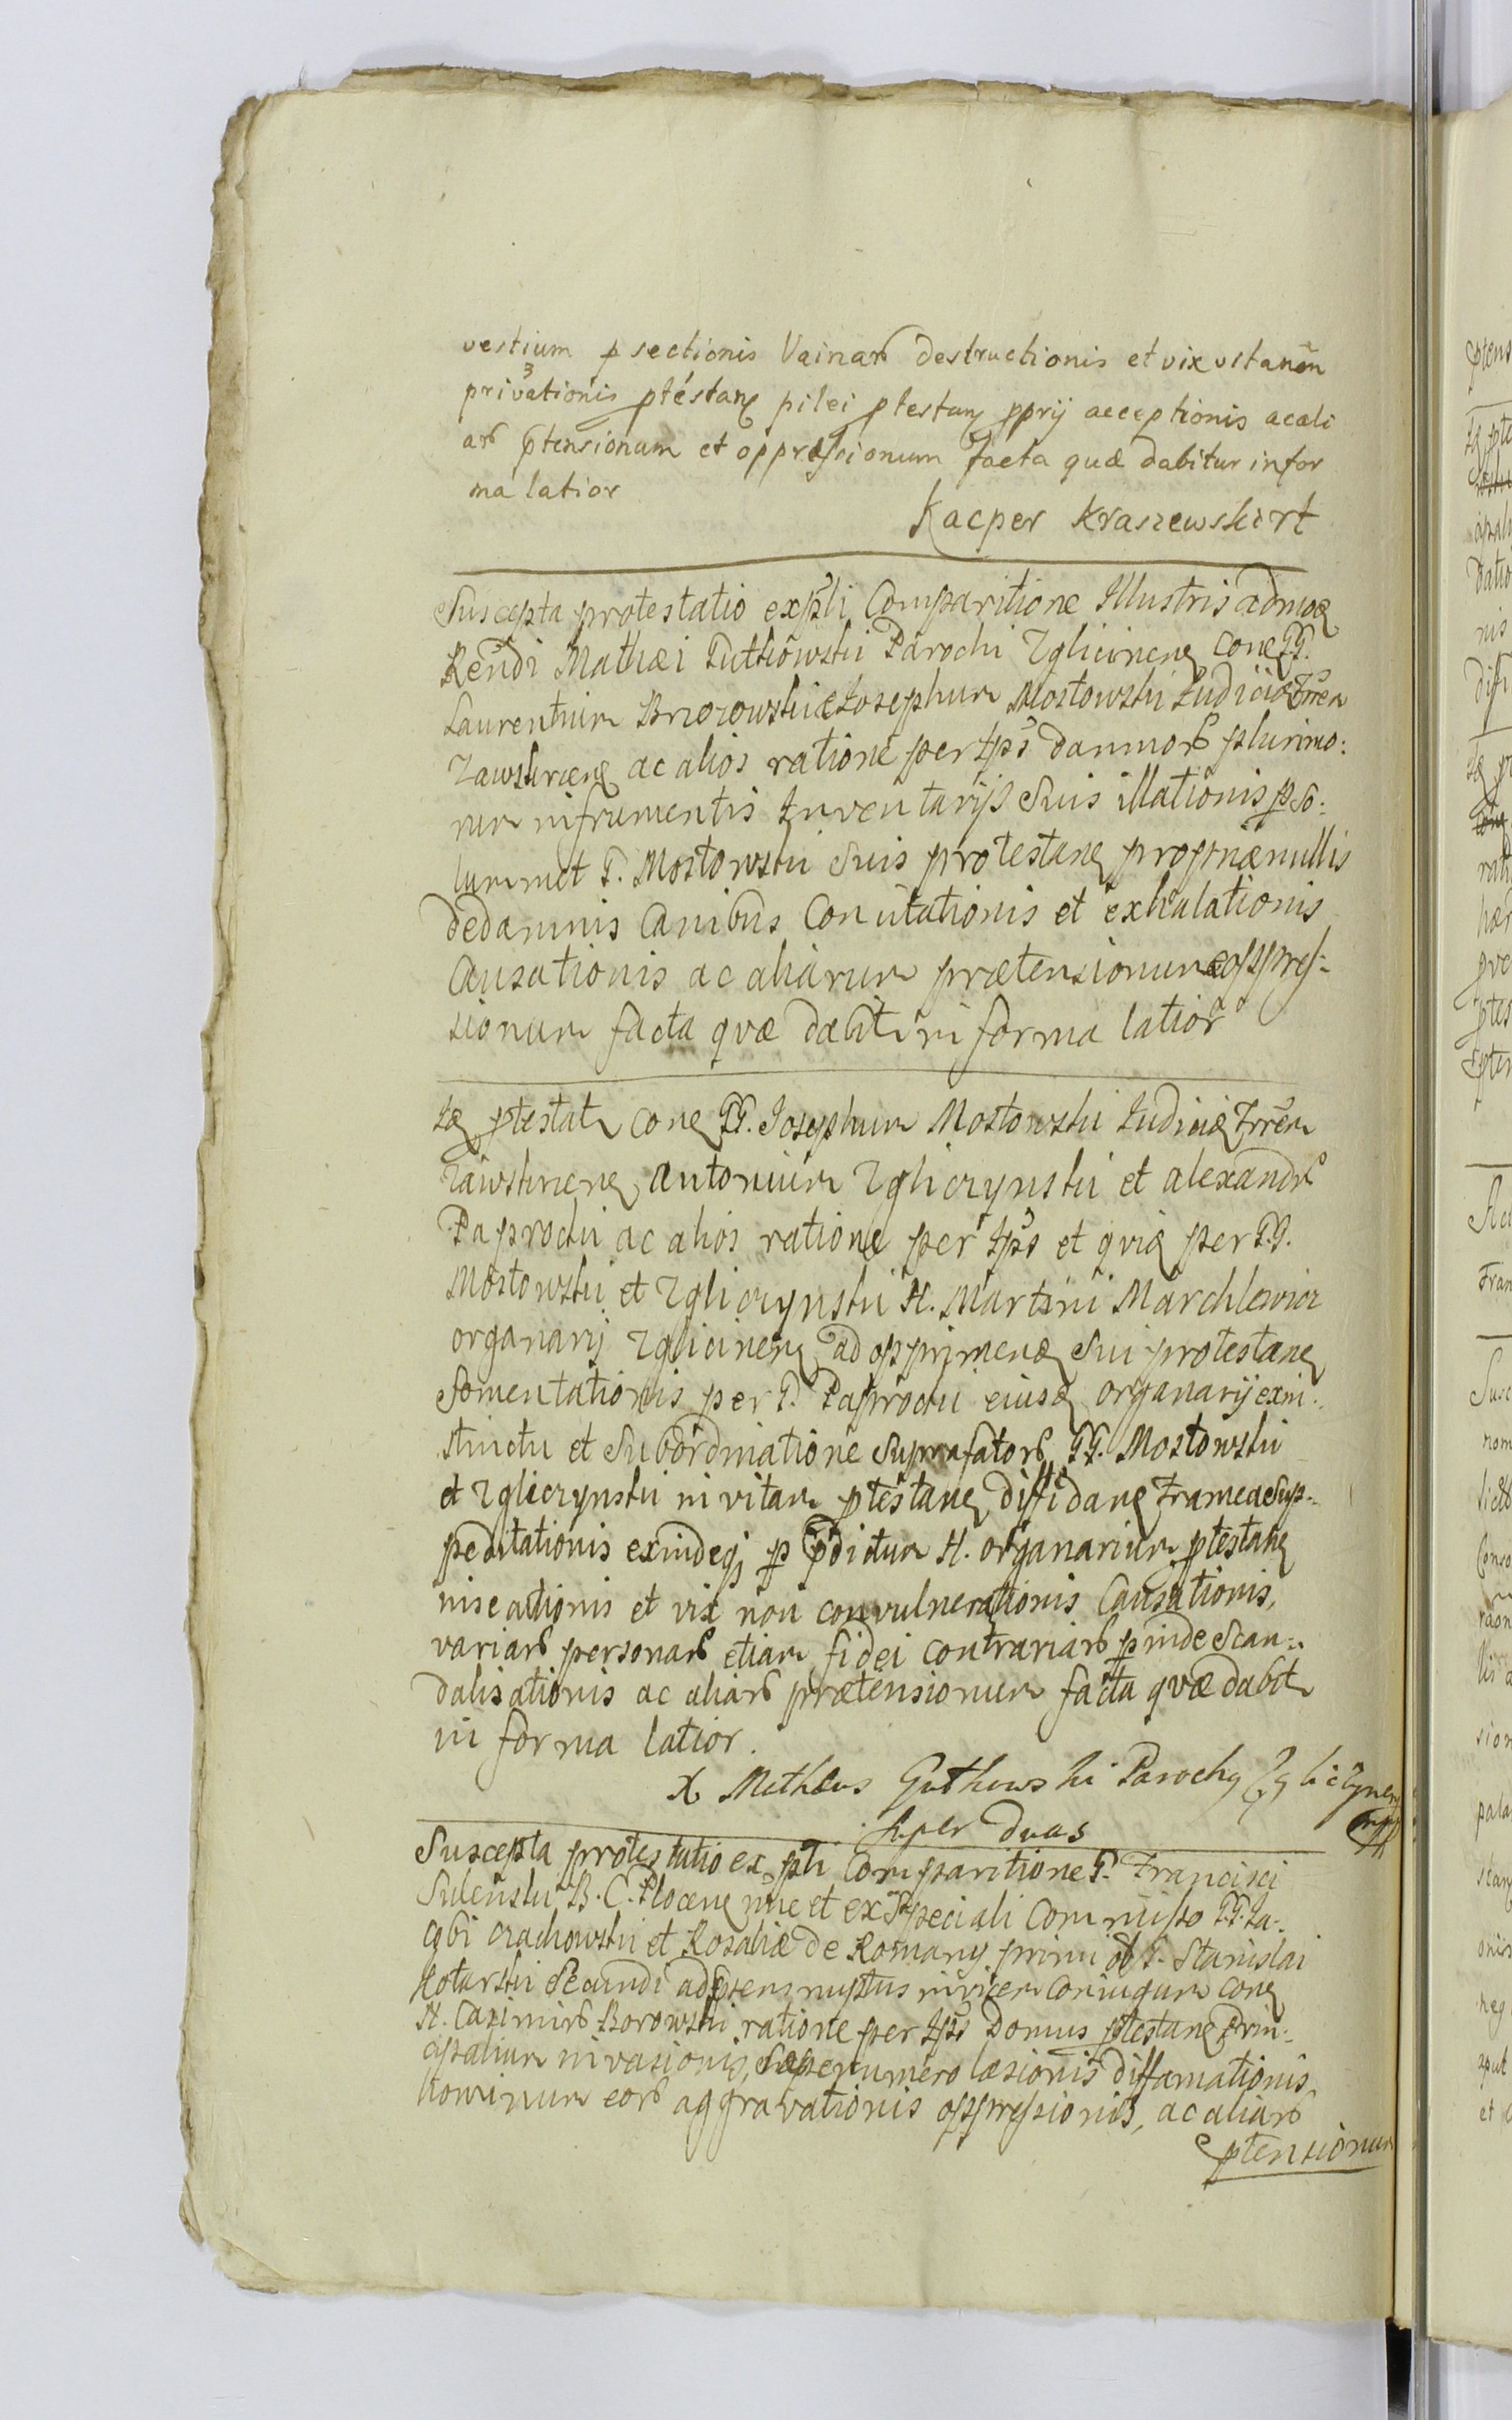 vestium p sectionis Vainar destructionis et vix ustanen
privationis ptestan pilei ptestan pprij acceptionis ac ali
ar ptensionum et oppressionum facta quæ dabitur in for
ma latior
Kacper Kraszewski rt
Suscepta protestatio ex psli Comparitione Illustris admo
Rendi Mathæi Gutkowski Parochi Zglicinen con GG.
Laurentium Brzozowski et Josephum Mostowski Judicia Trren
Zawskrzen ac alios ratione per Ips damnor plurimo:
rum in frumentis Inventarijs Suis illationis p so:
lummet G. Mostowski Suis protestan propriæ nullis
de damnis Canibus Concitationis et exhalationis
Causationis ac aliarum prætensionum et oppres-
sionum facta qvæ dabitr in forma latior
It ptestatr con GG. Josephum Mostowski Judicia Trren
Zawskrzen Antonium Zgliczynski et Alexandr
Paprocki ac alios ratione per Ips et qvia per GG.
Mostowski et Zgliczynski H. Martini Marchlewicz
organarij Zglicinen ad opprimend Sui protestan
Somentationis per G. Paprocki eiusd organarij ex in:
stinctu et Subordinatione Suprafator GG. Mostowski
et Zgliczynski in vitam ptestan diffidan Framea Sup:
peditationis exindeq p pdictum H. organarium ptestan
insectionis et vix non convulnerationis Causationis,
variar personar etiam fidei contrariar p inde Scan:
dalisationis ac aliar prætensionum facta qvæ dabitr
in forma latior.
X Mathæus Guthowski Parochq Zgliczynen
super duas mpp
Suscepta protestatio ex psti Comparitione G. Francisci
Sulenski B. C. Plocen nnc et ex Speciali Commisso GG. Ja:
cobi Czachowski et Rosaliæ de Romany primi ol G. Stanislai
Kotarski Secundi ad ptens nuptus invicem Coniugum con
H. Casimir Borowski ratione per Ips Domus ptestan Prin:
cipalium invasionis, Sæpenumero læsionis diffamationis
hominum eor aggravationis oppressionis, ac aliar
ptensionum